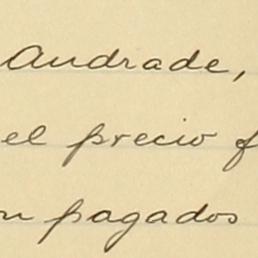 Andrade,
el precio f
n pagados